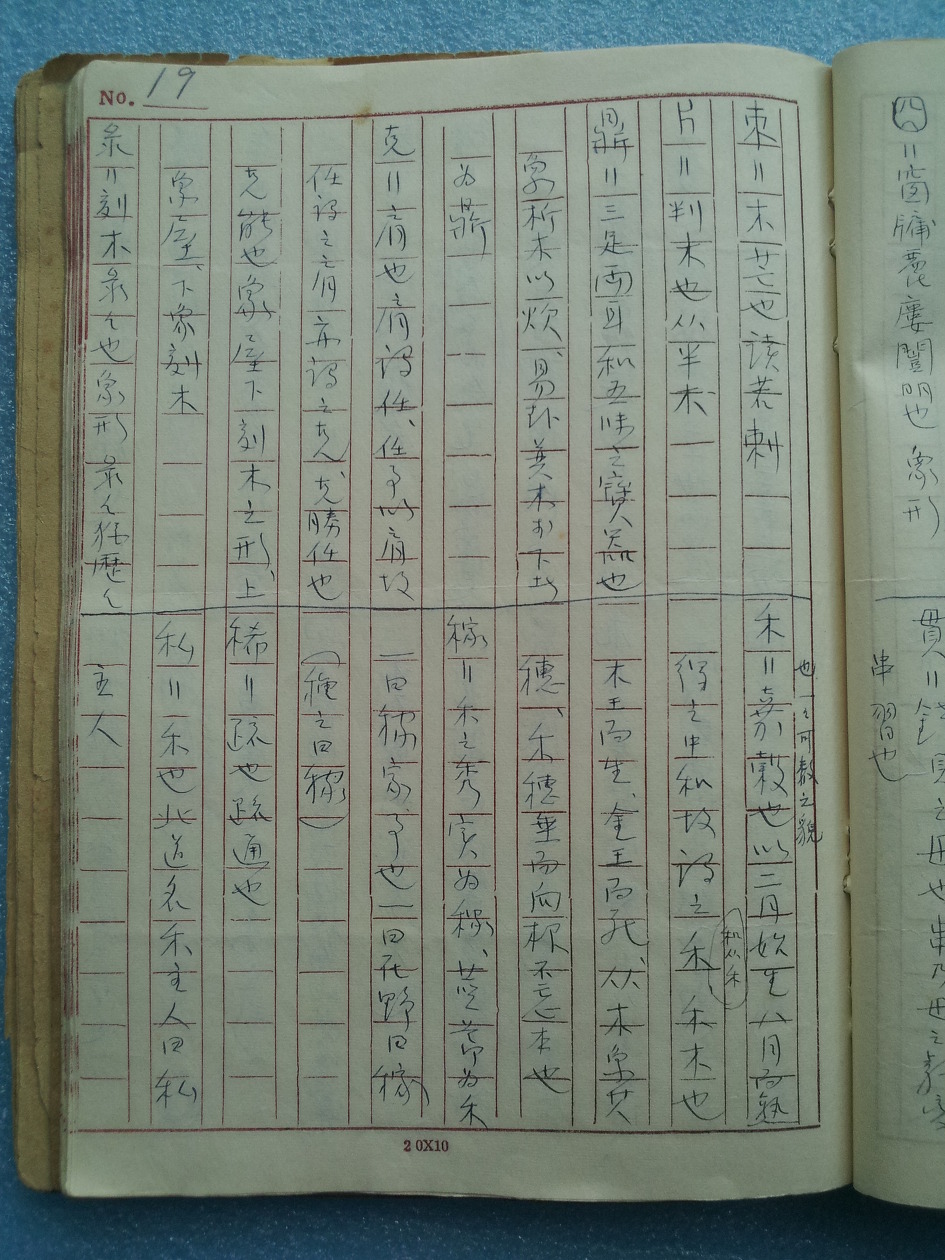 No. 19
朿＝木芒也讀若刺
片＝判木也从半木
鼎＝三足兩耳和五味之寶器也
象析木以炊、易卦巽木於下者
為鼎
克＝肩也肩謂任、任事以肩故
任謂之肩亦謂之克、克勝任也
克能也象屋下刻木之形、上
象屋、下象刻木
彔＝刻木彔々也象形 彔々猶歷々
也一々可數之貌
禾＝嘉穀也以二月始生八月而熟
得之中和故謂之禾禾木也
和从禾
木王而生、金王而死、从木象其
穗、禾穗垂而向根不忘本也
稼＝禾之秀實為稼、莖節為禾
一曰稼家事也一曰在野曰稼
(種之曰稼)
稀＝疏也疏通也
私＝禾也北道名禾主人曰私
主人
20X10
囧＝窗牖麗廔闓明也 象形
貫＝錢貝之毌也串乃毌之
串習也